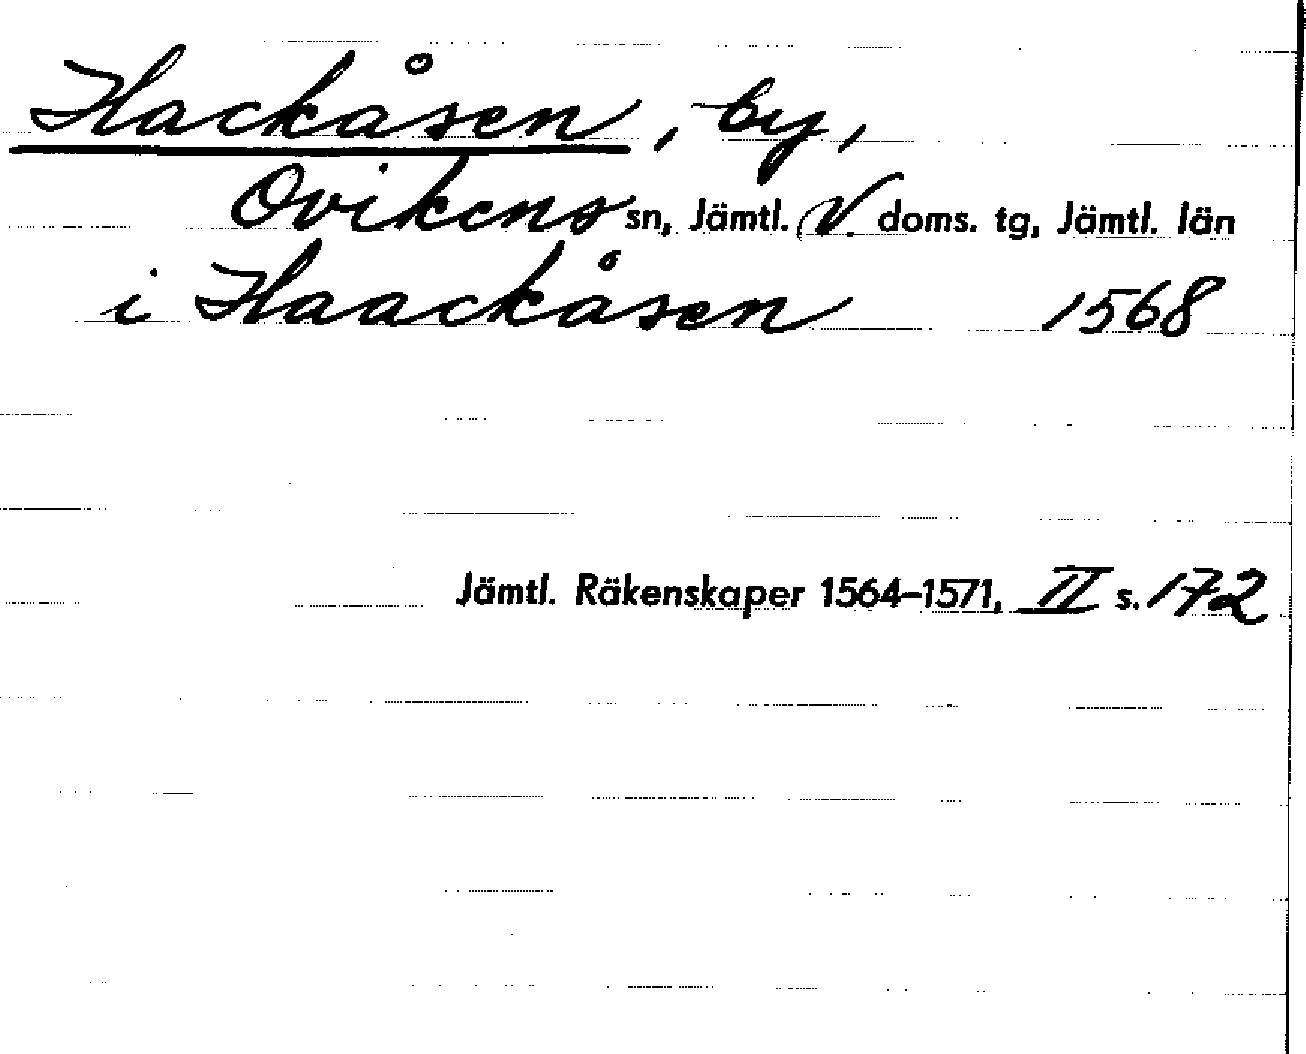 Hackåsen, by,
Ovikens sn, Jämtl. V. doms. tg, Jämtl. län
i Haackåsen 1568
Jämtl. Räkenskaper 1564–1571, II s. 172